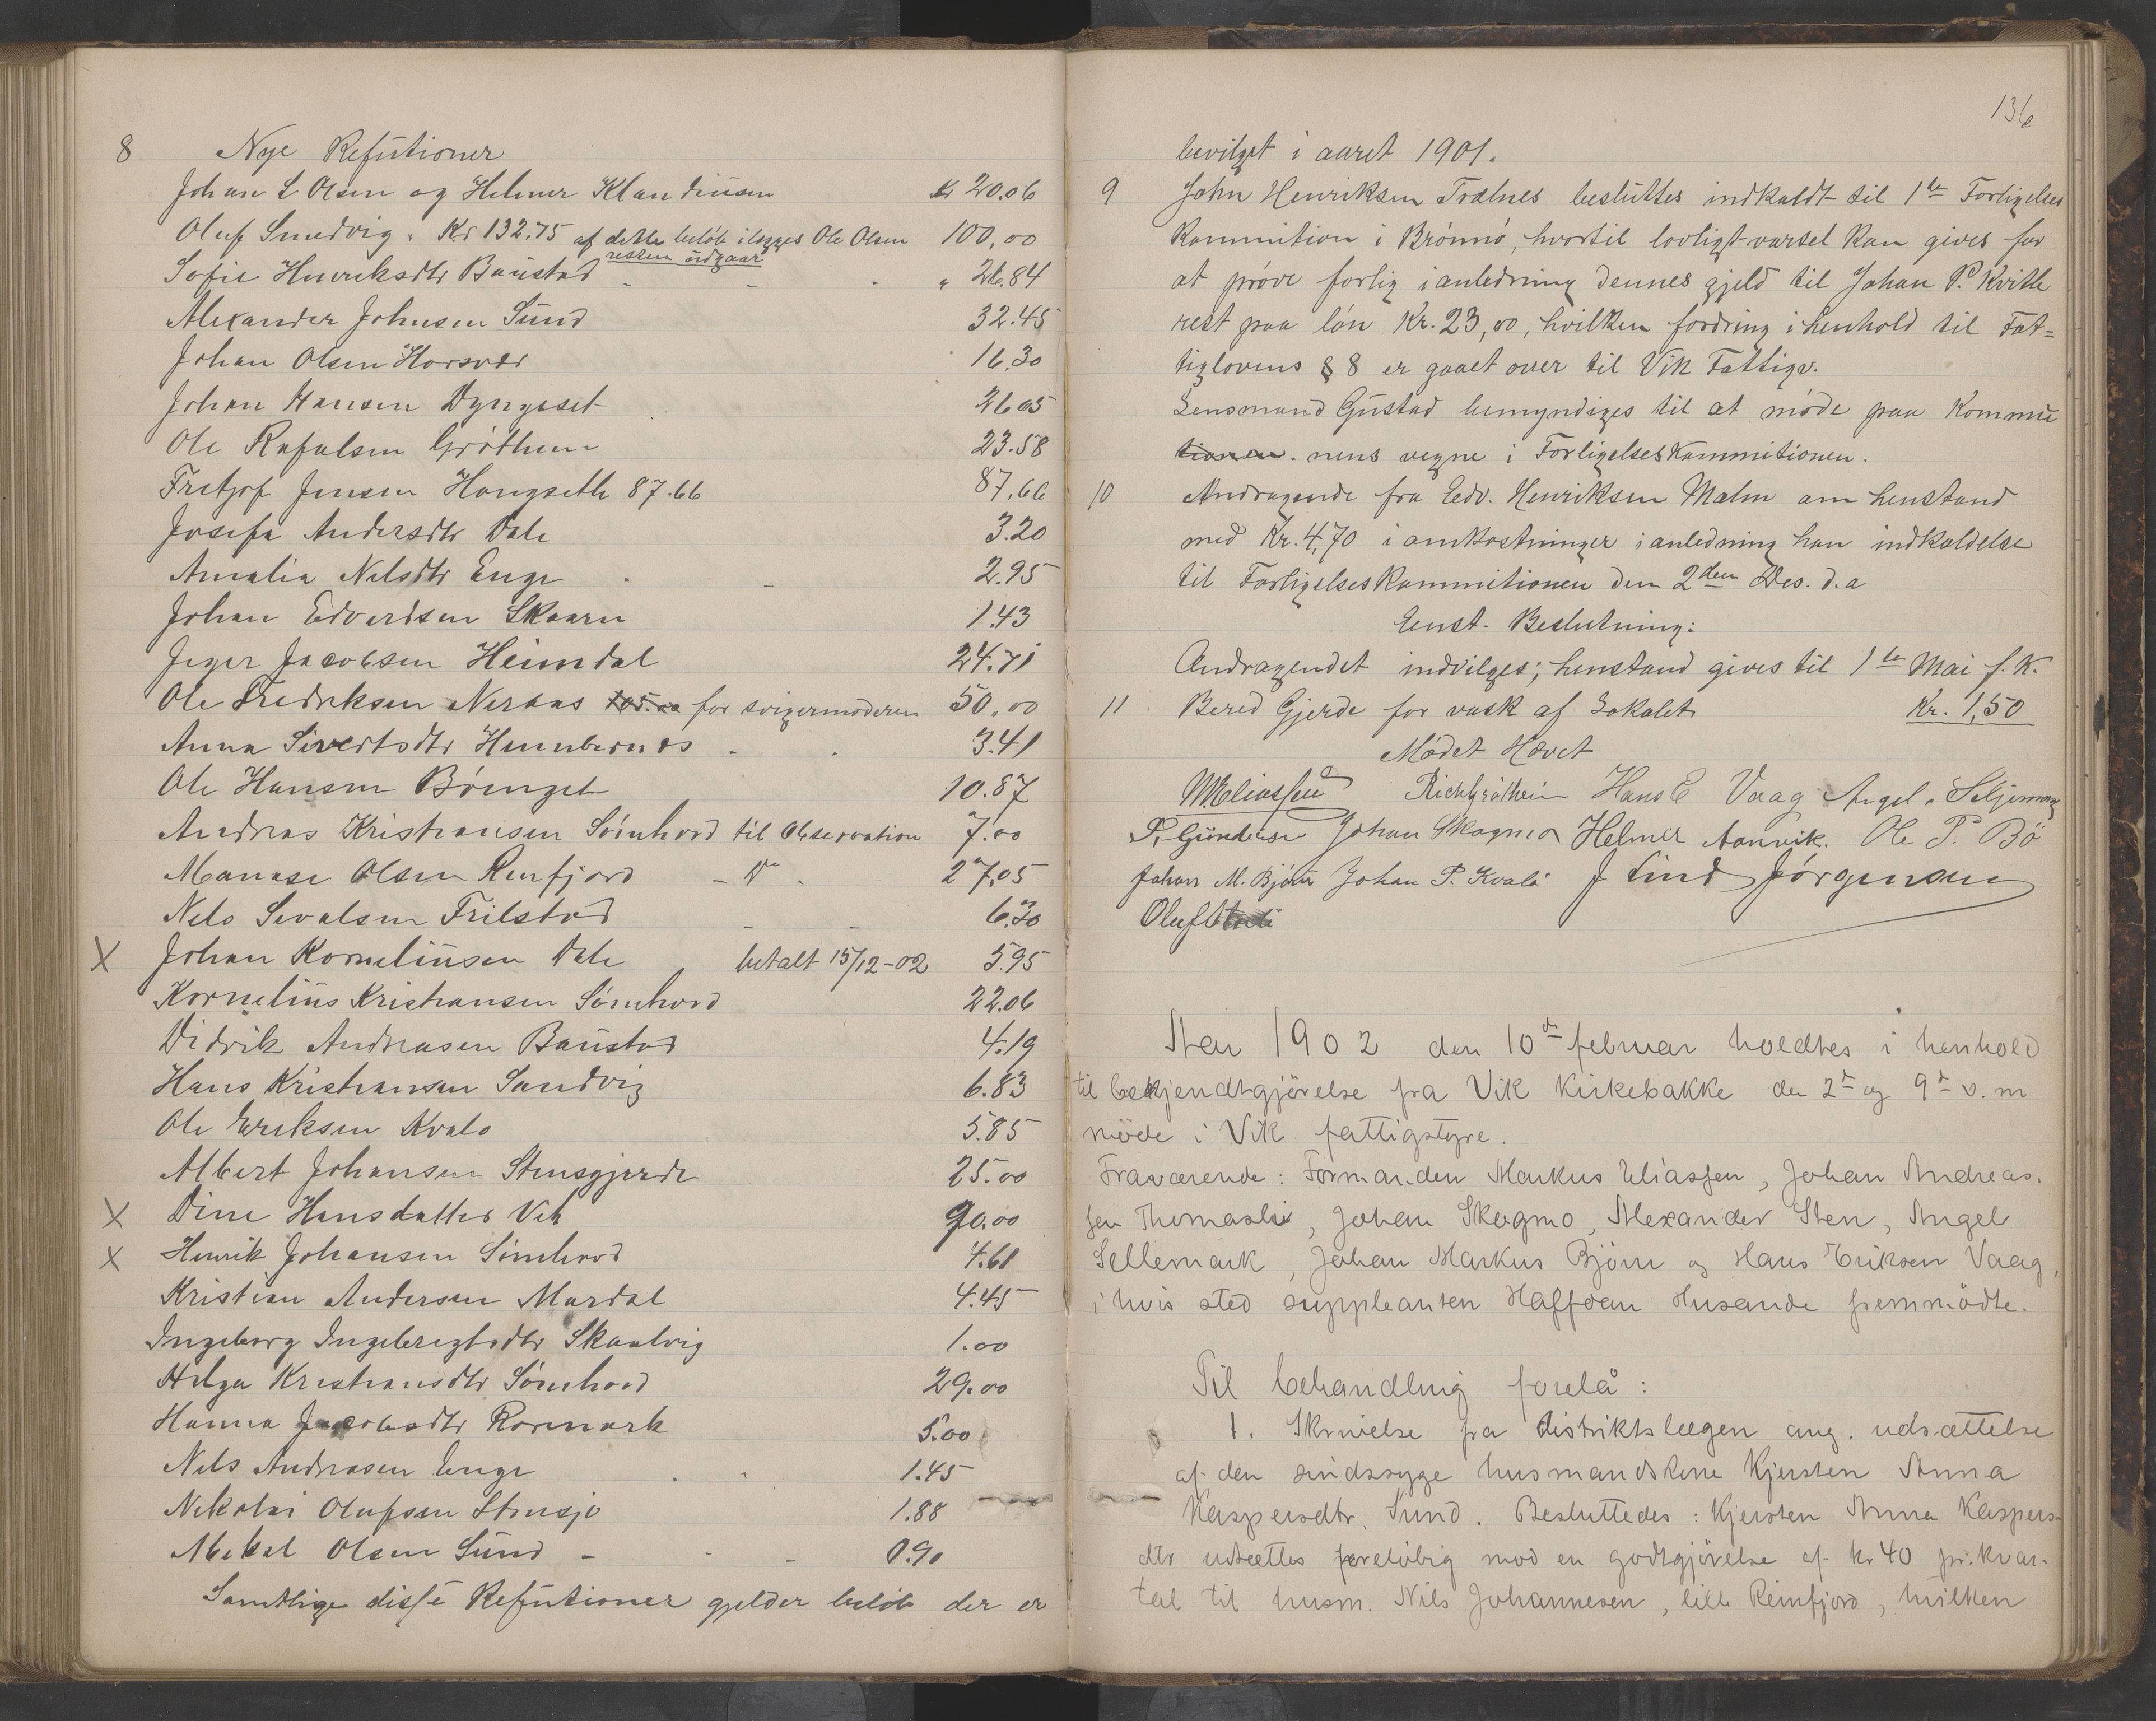 8 Nye Refutioner
Johan L Olsen og Helmer Klaudiusen Kr 20.06
Oluf Smedvig. Kr 132.75 af dette beløb ilægges Ole Olsen 100,00
resten udgaar
Sofie Henriksdtr Baustad - - . " 26.84
Alexander Johnsen Sund 32.45
Johan Olsen Horsvær 16.30
Johan Hansen Dyngeset 26.05
Ole Rafalsen Grøtheim 23.58
Fretjof Jensen Hongseth 87.66 87,66
Josefa Andersdtr Dale 3.20
Amalia Nilsdtr Enge . - 2.95
Johan Edvardsen Skaarn 1.43
Jeger Jacobsen Heimdal 24.71
Ole Fredriksen Neraas 105.00 for svigermoderen 50,00
Anna Sivertsdtr Humbernes - . 3.41
Ole Hansen Bøenget 10.87
Andreas Kristiansen Sømhovd til Observation 7.00
Manase Olsen Renfjord - Do . 27,05
Nels Sivalsen Trilstad - - 6.30
X Johan Korneliusen Dale betalt 15/12-02 5.95
Kornelius Kristiansen Sømhovd 22.06
Didrik Andreasen Baustad 4.19
Hans Kristiansen Sandvig 6.83
Ole Eriksen Kvalø 5.85
Albert Johansen Stensgjerde 25.00
X Dine Hansdatter Vik 90.00
X Henrik Johansen Sømhovd 4.61
Kristian Andersen Mardal 4.45
Ingeborg Ingebregtsdtr Skaalvig 1.00
Helga Kristiansdtr Sømhovd 29.00
Hanna Jacobsdtr Rormark 5.00
Nils Andreasen Enge . . 1.45
Nikolai Olufsen Stensjø 1.88
Mekal Olsen Sund - - - 0.90
Samtlige disse Refutioner gjelder beløb der er
136
bevilget i aaret 1901.
9 John Henriksen Trælnes besluttes indkaldt til 1ste Forligelses
Kommition i Brønnø, hvortil lovligt varsel kan gives for
at prøve forlig ianledning dennes gjeld til Johan P. Kvithe
rest paa løn Kr. 23,00, hvilken fordring ihenhold til Fat=
tiglovens § 8 er gaaet over til Vik Fattigv.
Lensmand Gustad bemyndiges til at møde paa Kommu
tionen. nens vegne i Forligelseskommitionen.
10 Andragende fra Edv. Henriksen Malm om henstand
med Kr. 4,70 i omkostninger ianledning han indkaldelse
til Forligelseskommitionen den 2den Des. d.a
Enst. Beslutning:
Andragendet indvilges; henstand gives til 1ste Mai f.K.
11 Bered Gjerde for vask af Lokalet Kr. 1,50
Mødet Hævet
MEliassen Rich Grøtheim Hans E Vaag Angel. Seljemark
P. Gundersen Johan Skogmo Helmer Aanvik. Ole P. Bø
Johan M. Bjørn Johan P. Kvalø J Lind Jørgensen
Oluf
Aar 1902 den 10de februar holdtes i henhold
til bekjendtgjörelse fra Vik Kirkebakke den 2de og 9de v. m
möde i Vik fattigstyre.
Fraværende: Formanden Markus Eliassen, Johan Andreas.
sen Thomasli, Johan Skogmo, Alexander Sten, Angel
Sellemark, Johan Markus Bjørn og Hans Eriksen Vaag,
i hvis sted suppleanten Halfdan Husande fremmödte.
Til behandling forelå:
1. Skrivelse fra distriktslægen ang. udsættelse
af den sindssyge husmandskone Kjersten Anna
Kaspersdtr. Sund. Besluttedes: Kjersten Anna Kaspers-
dtr udsættes foreløbig mod en godtgjörelse af kr 40 pr. kvar-
tal til husm. Nils Johannesen, lille Reinfjord, hvilken